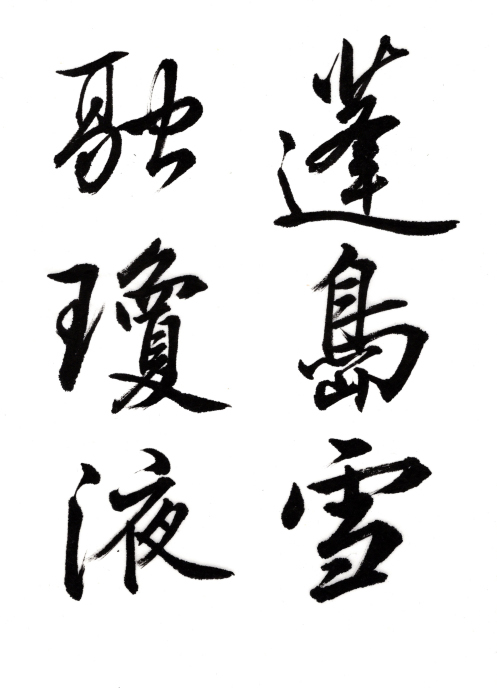 蓬島雪
融瓊液